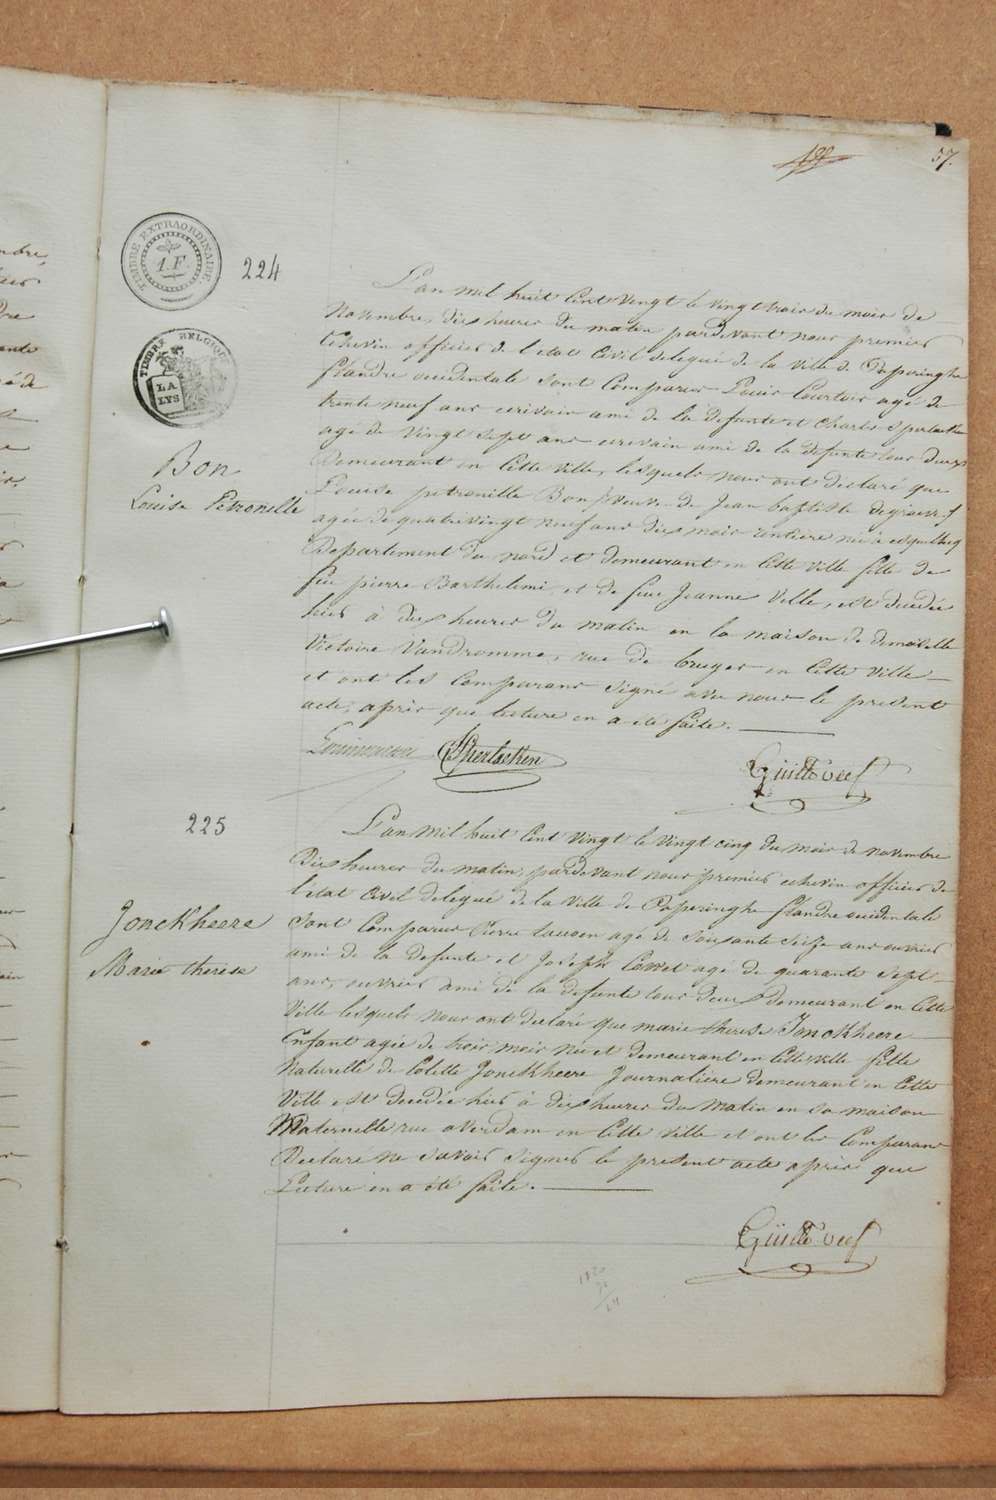 57.
TIMBRE EXTRAORDINAIRE.
1.F.
224
TIMBRE BELGIQUE
LA
LYS
Bon
Louise Pétronelle
L'an mil huit cent vingt le vingt trois du mois de
Novembre, dix heures du matin pardevant nous premier
Echevin officier de l'état civil delegué de la ville de Poperinghe
flandre occidentale sont comparus Louis Courtois agé de
trente neuf ans ecrivain ami de la defunte et Charles
agé de vingt sept ans ecrivain ami de la defunte tous deux
Demeurant en cette ville, lesquels nous ont déclaré que
Louise petronille Bon veuve de Jean baptiste
agée de quatrevingt neuf ans dix mois rentière née à
Departement du nord et demeurant en cette ville fille de
feu pierre Barthelemi, et de feue Jeanne Ville, est decedée
hier à dix heures du matin en la maison de demoiselle
Victoire Vandromme, rue de bruges en cette ville
et ont les comparans signé avec nous le present
acte, après que lecture en a été faite.
225
Jonckheere
Marie therese
L'an mil huit cent vingt le vingt cinq du mois de novembre
Dix heures du matin, pardevant nous premier echevin officier de
l'état civil delegué de la ville de Poperinghe flandre occidentale
sont comparus Pierre agé de soixante seize ans ouvrier
ami de la defunte et Joseph agé de quarante sept
ans, ouvrier ami de la defunte tous deux demeurant en cette
ville lesquels nous ont declaré que marie therese Jonckheere
Enfant agée de trois mois née et demeurant en cette ville fille
Naturelle de Colette Jonckheere Journalière demeurant en cette
Ville est decedée hier à dix heures du matin en sa maison
Maternelle rue overdam en cette ville et ont les comparans
Declaré ne savoir signer le present acte après que
Lecture en a été faite.